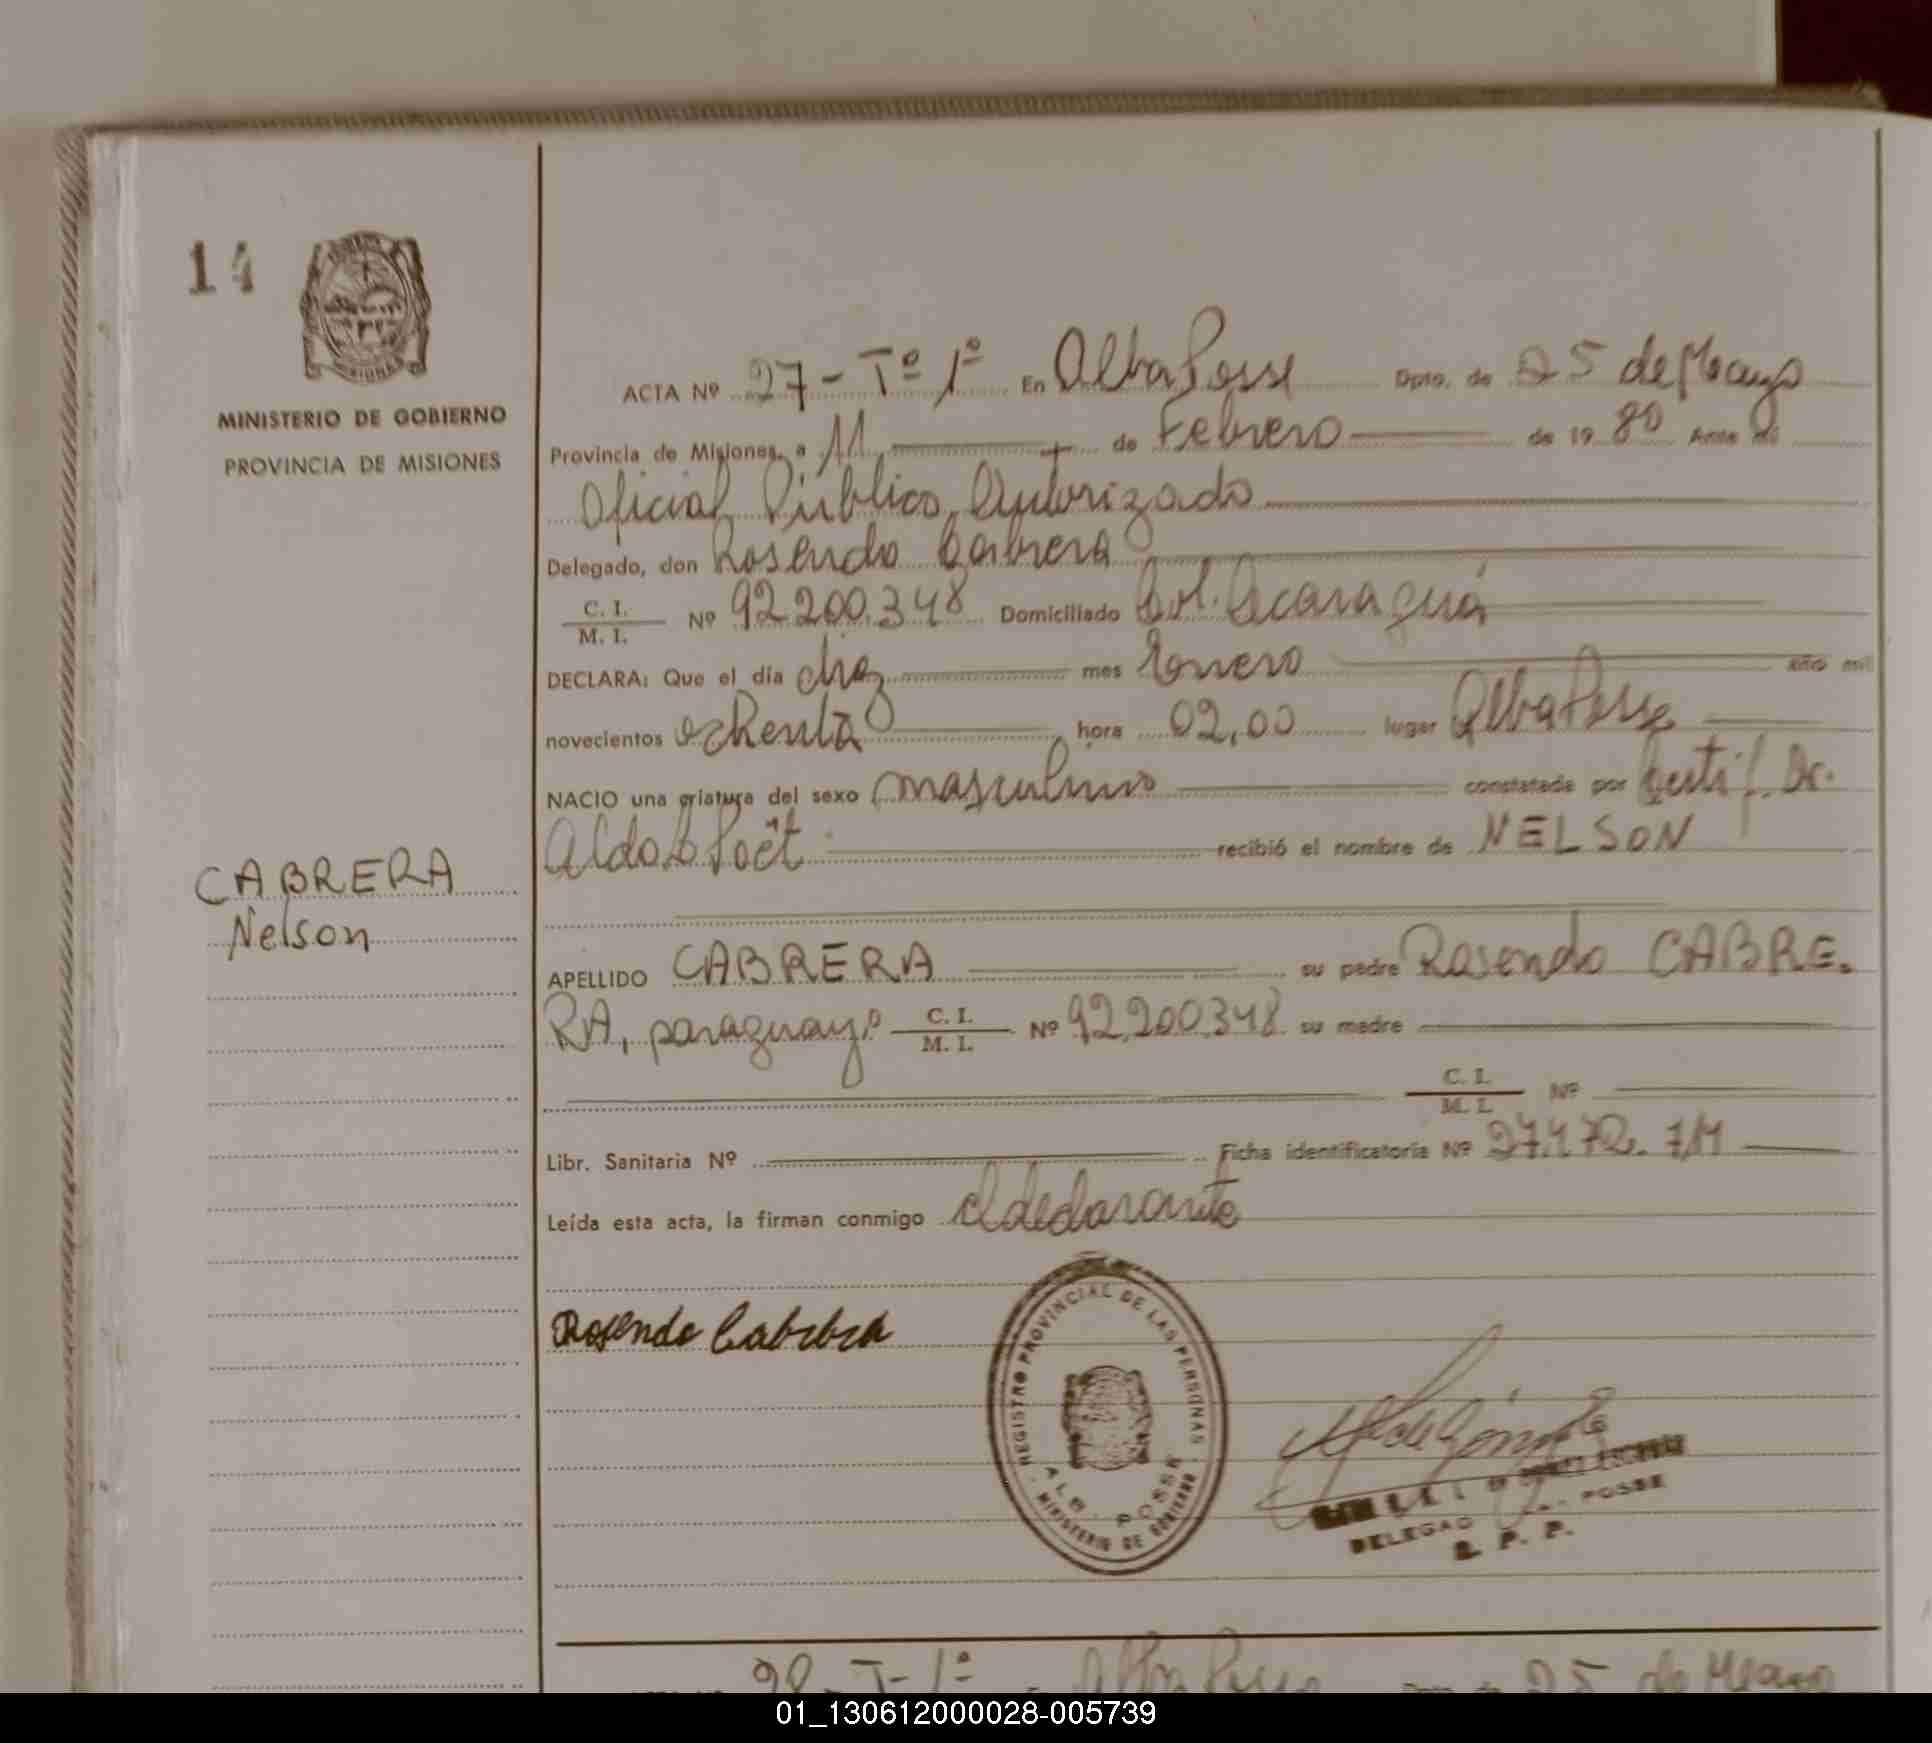 14
MINISTERIO DE GOBIERNO
PROVINCIA DE MISIONES
ACTA Nº 27 - Tº 1º En Alba Posse Dpto. de 25 de Mayo
Provincia de Misiones, a 11 de Febrero de 19 80 Ante mi
Oficial Público Autorizado
Delegado, don Rosendo Cabrera
C. I.
M. I. Nº 92.200.348 Domiciliado Col. Acaraguá
DECLARA: Que el día diez mes Enero año mil
novecientos ochenta hora 02,00 lugar Alba Posse
NACIO una criatura del sexo masculino constatada por Certif. Dr.
Aldo Poët recibió el nombre de NELSON
CABRERA
Nelson
APELLIDO CABRERA su padre Rosendo CABRE.
RA, paraguayº C. I.
M. I. Nº 92.200.348 su madre
C. I.
M. I. Nº
Libr. Sanitaria Nº Ficha identificatoria Nº 27.172. 7/M
Leída esta acta, la firman conmigo el declarante
Rosendo Cabrera
REGISTRO PROVINCIAL DE LAS PERSONAS
ALB. POSSE
MINISTERIO DE GOBIERNO
POSSE
DELEGAD
R. P. P.
28 - T - 1º Alba Posse 25 de Mayo
01_130612000028-005739